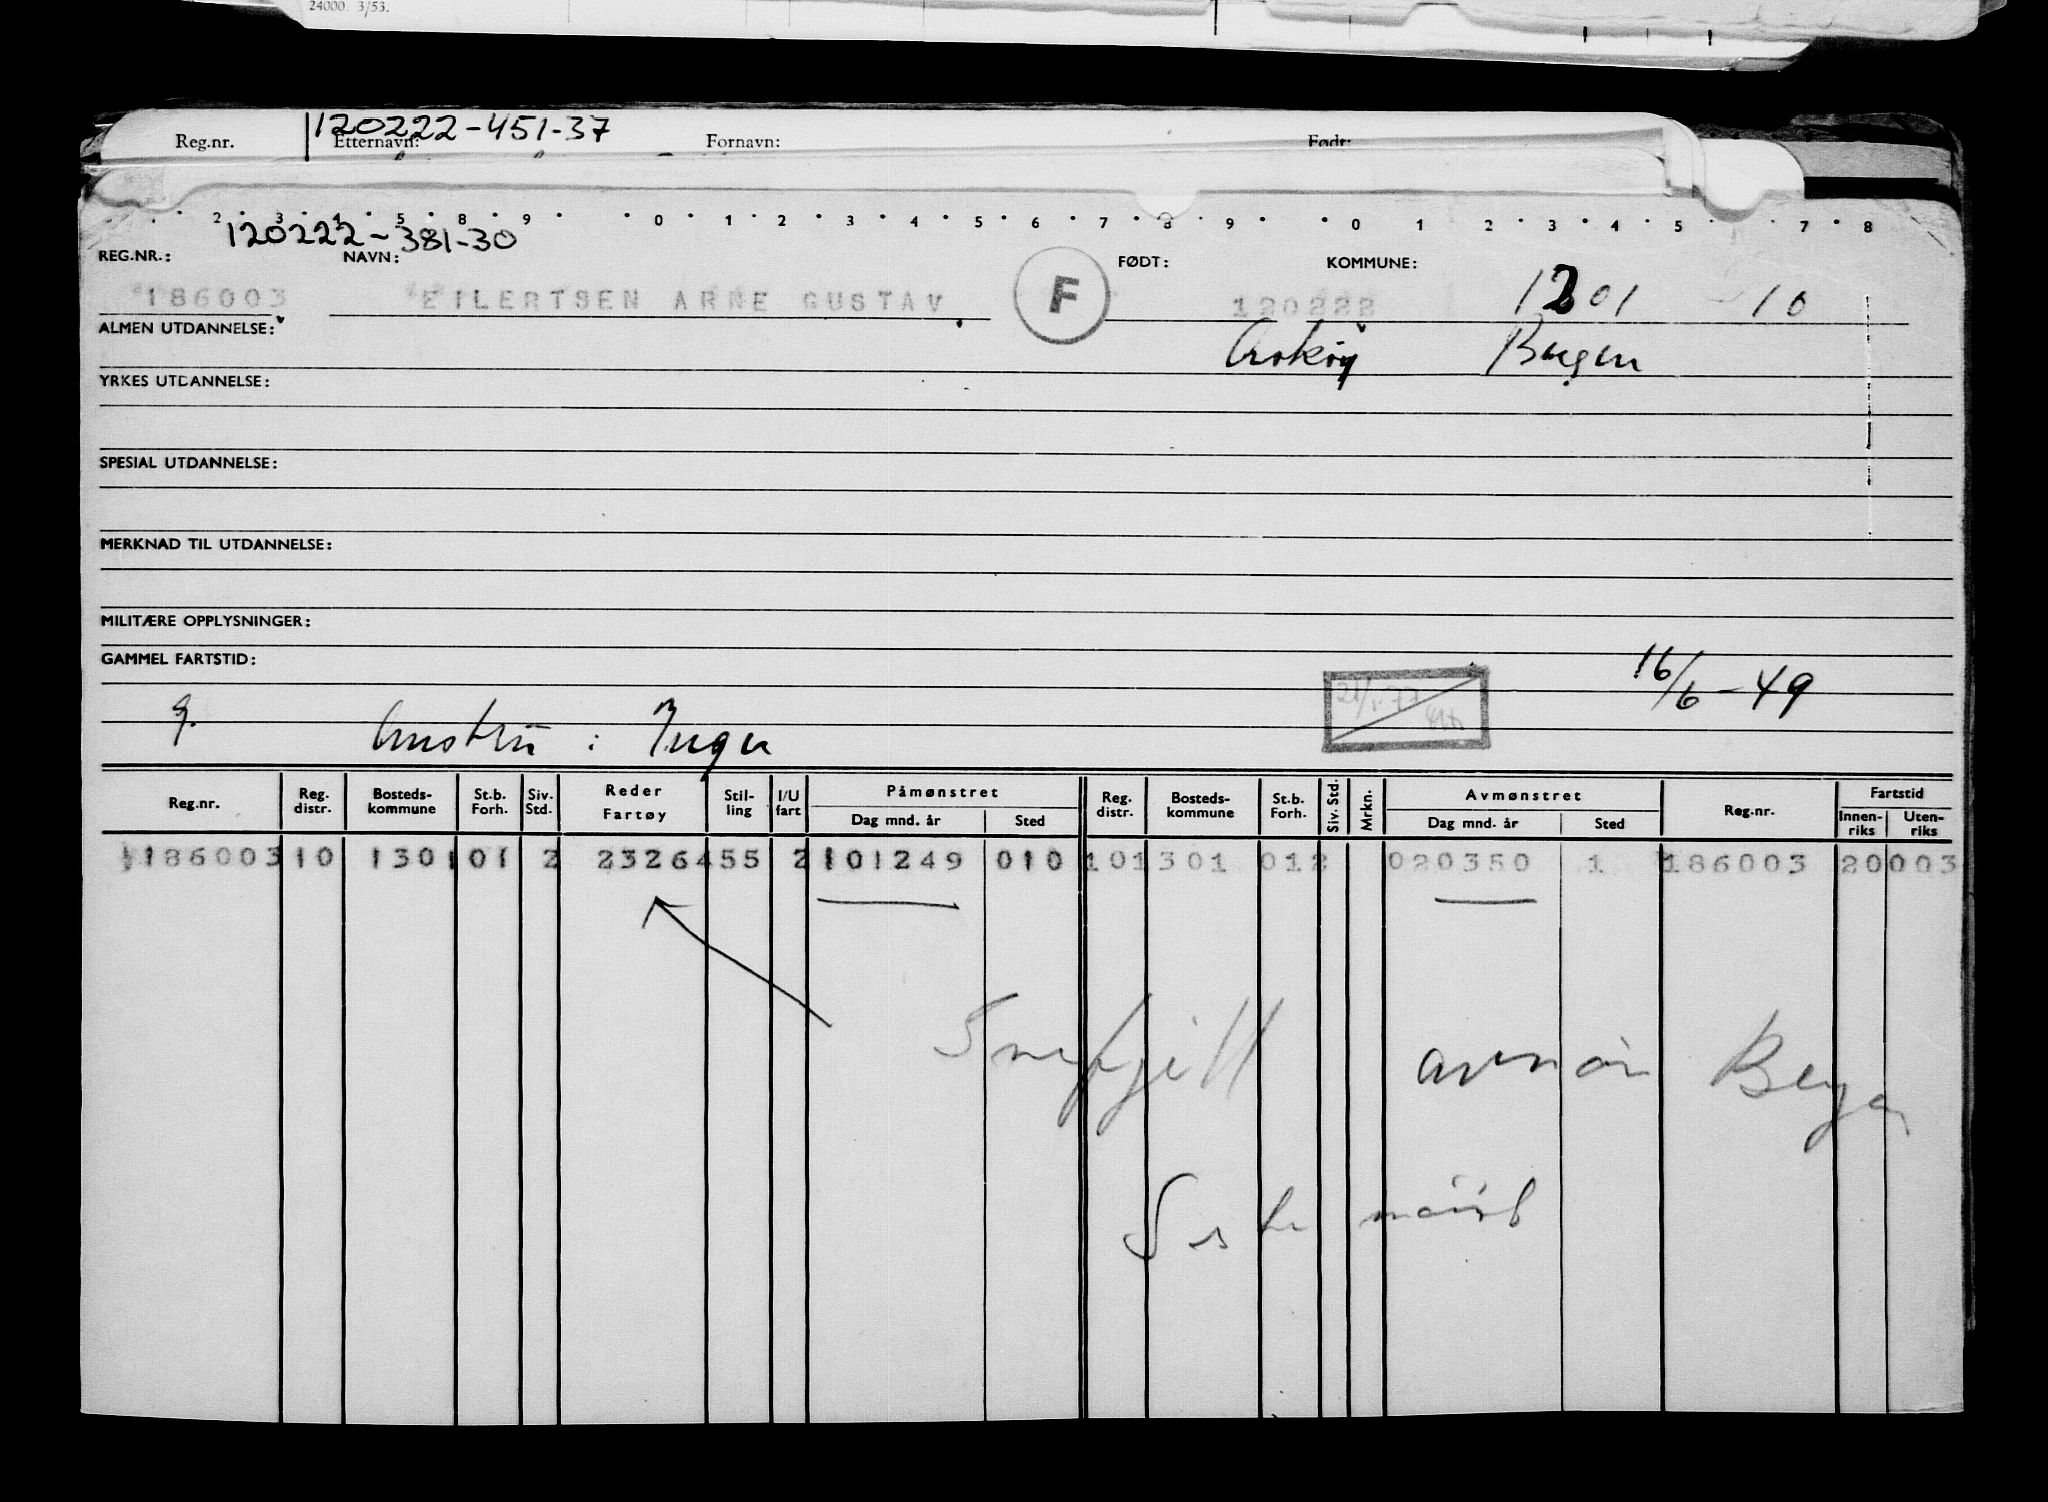 24000. 3/53.
120222-451-37
Reg.nr. Etternavn: Fornavn: Født:
2 3 4 5 8 9 0 1 2 3 4 5 6 7 8 9 0 1 2 3 4 5 7 8
120222-381-30
REG.NR.: NAVN: FØDT: KOMMUNE:
186003 EILERTSEN ARNE GUSTAV F 120222 1301 10
ALMEN UTDANNELSE: Askøy Bergen
YRKES UTDANNELSE:
SPESIAL UTDANNELSE:
MERKNAD TIL UTDANNELSE:
MILITÆRE OPPLYSNINGER:
GAMMEL FARTSTID: 16/6-49
: Inger
Reg.nr. Reg. distr. Bosteds-kommune St.b. Forh. Siv. Std. Reder Fartøy Stil-ling I/U fart Påmønstret Dag mnd. år Sted Reg. distr. Bosteds-kommune St.b. Forh. Siv. Std. Mrkn. Avmønstret Dag mnd. år Sted Reg.nr. Fartstid Innen-riks Uten-riks
186003 10 1301 01 2 23264 55 2 101249 010 10 1301 012 020350 1 186003 20003
Snefjell avmøn Bergen
Siste mønst